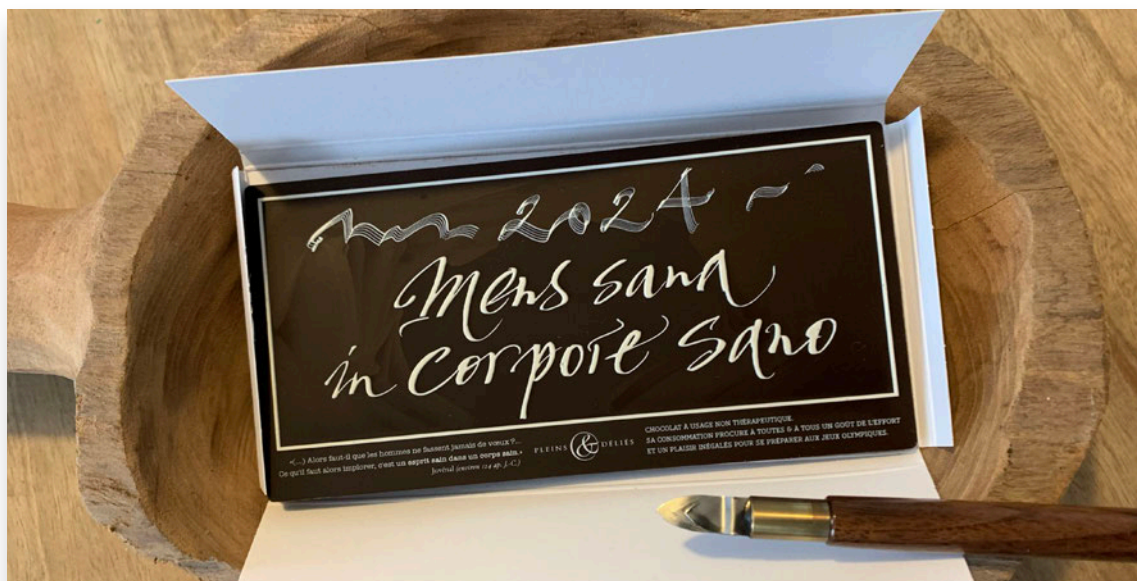 2024
Mens sana
in corpore sano
«(...) Alors faut-il que les hommes ne fassent jamais de vœux ?...
Ce qu'il faut alors implorer, c'est un esprit sain dans un corps sain.»
Juvénal (environ 124 ap. J.-C.)
PLEINS & DÉLIÉS
CHOCOLAT À USAGE NON THÉRAPEUTIQUE.
SA CONSOMMATION PROCURE À TOUTES & À TOUS UN GOÛT DE L'EFFORT
ET UN PLAISIR INÉGALÉS POUR SE PRÉPARER AUX JEUX OLYMPIQUES.